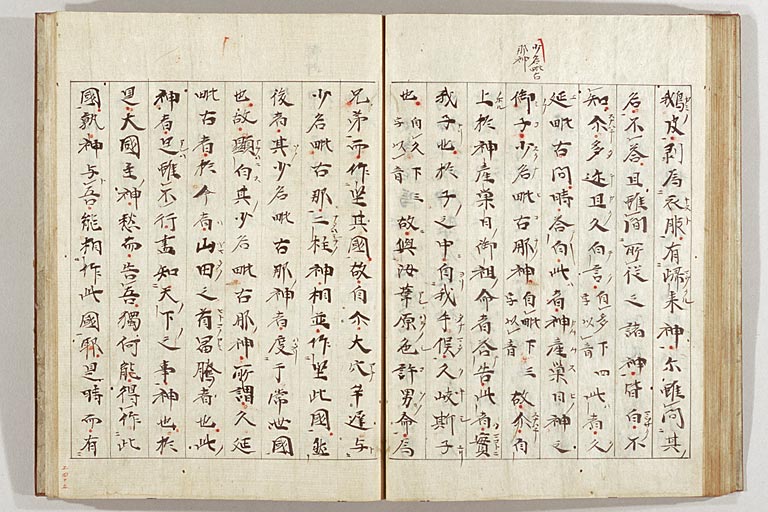 少名毗古
那神
鵝皮剥為衣服有帰来神尓雖問其
名不答且雖問所従之諸神皆白不
知尓多迩且久白言自多下四字以音此者久
延毗古問時答白此者神産巣日神之
御子少名毗古那神自毗下三字以音故尓白
上於神産巣日御祖命者答告此者實
我子也於子之中自我手俣久岐斯子
也自久下三字以音故與汝葦原色許男命為
兄弟而作堅其國故自尓大穴牟遅与
少名毗古那二柱神相並作堅此國然
後者其少名毗古那神者度于常世國
也故顕白其少名毗古那神所謂久延
毗古者於今者山田之曽冨騰者也此
神者足雖不行盡知天下之事神也於
是大國主神愁而告吾獨何能得作此
國孰神与吾能相作此國耶是時而有